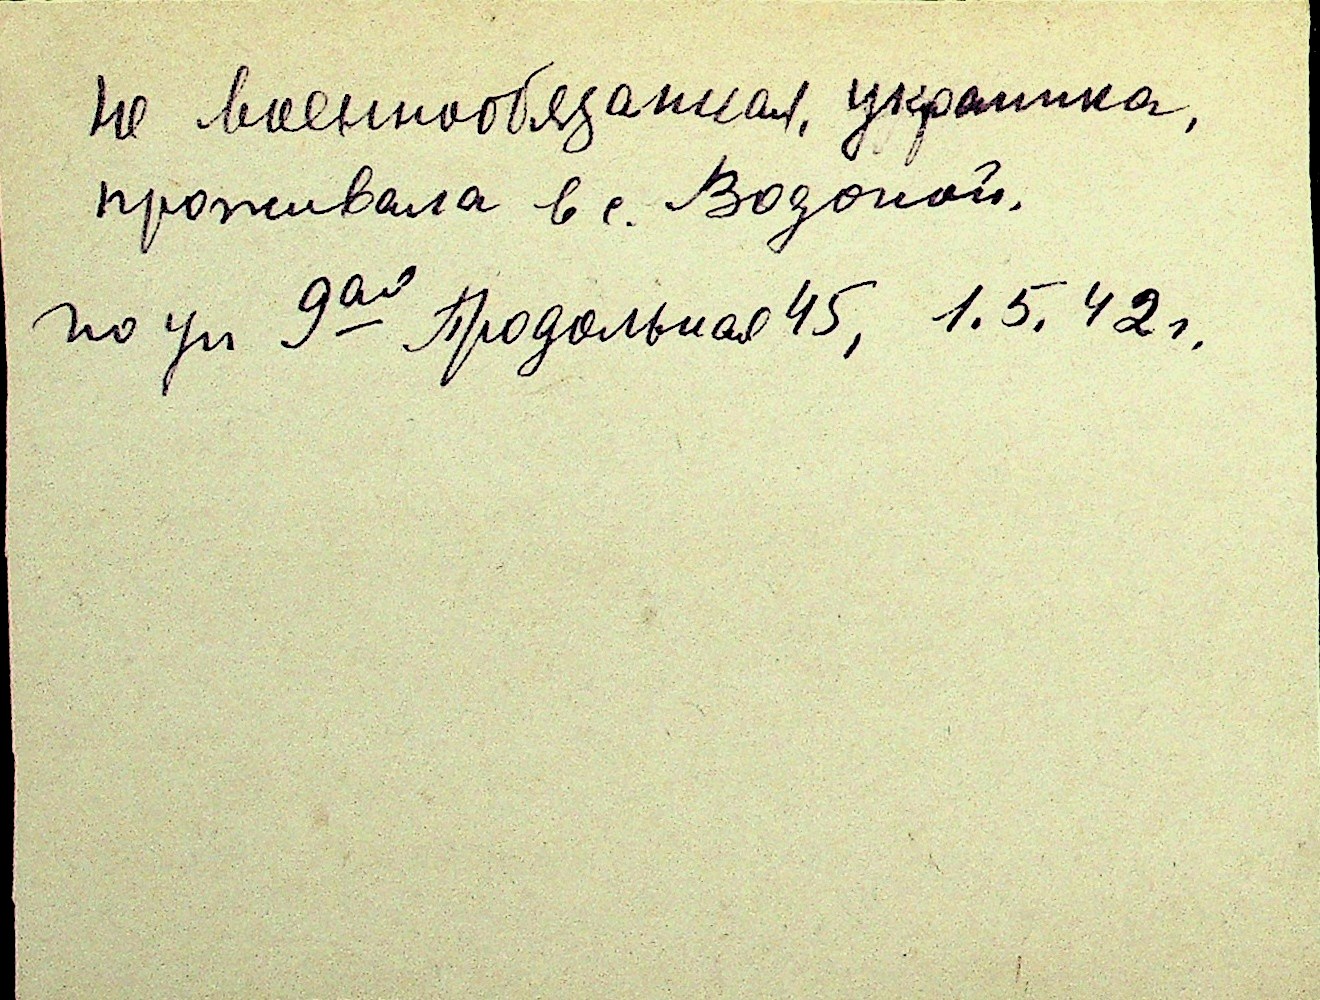 не военнообязанная, украинка,
проживала в с. Водопой.
по ул 9ая Продольная 45, 1.5.42г.